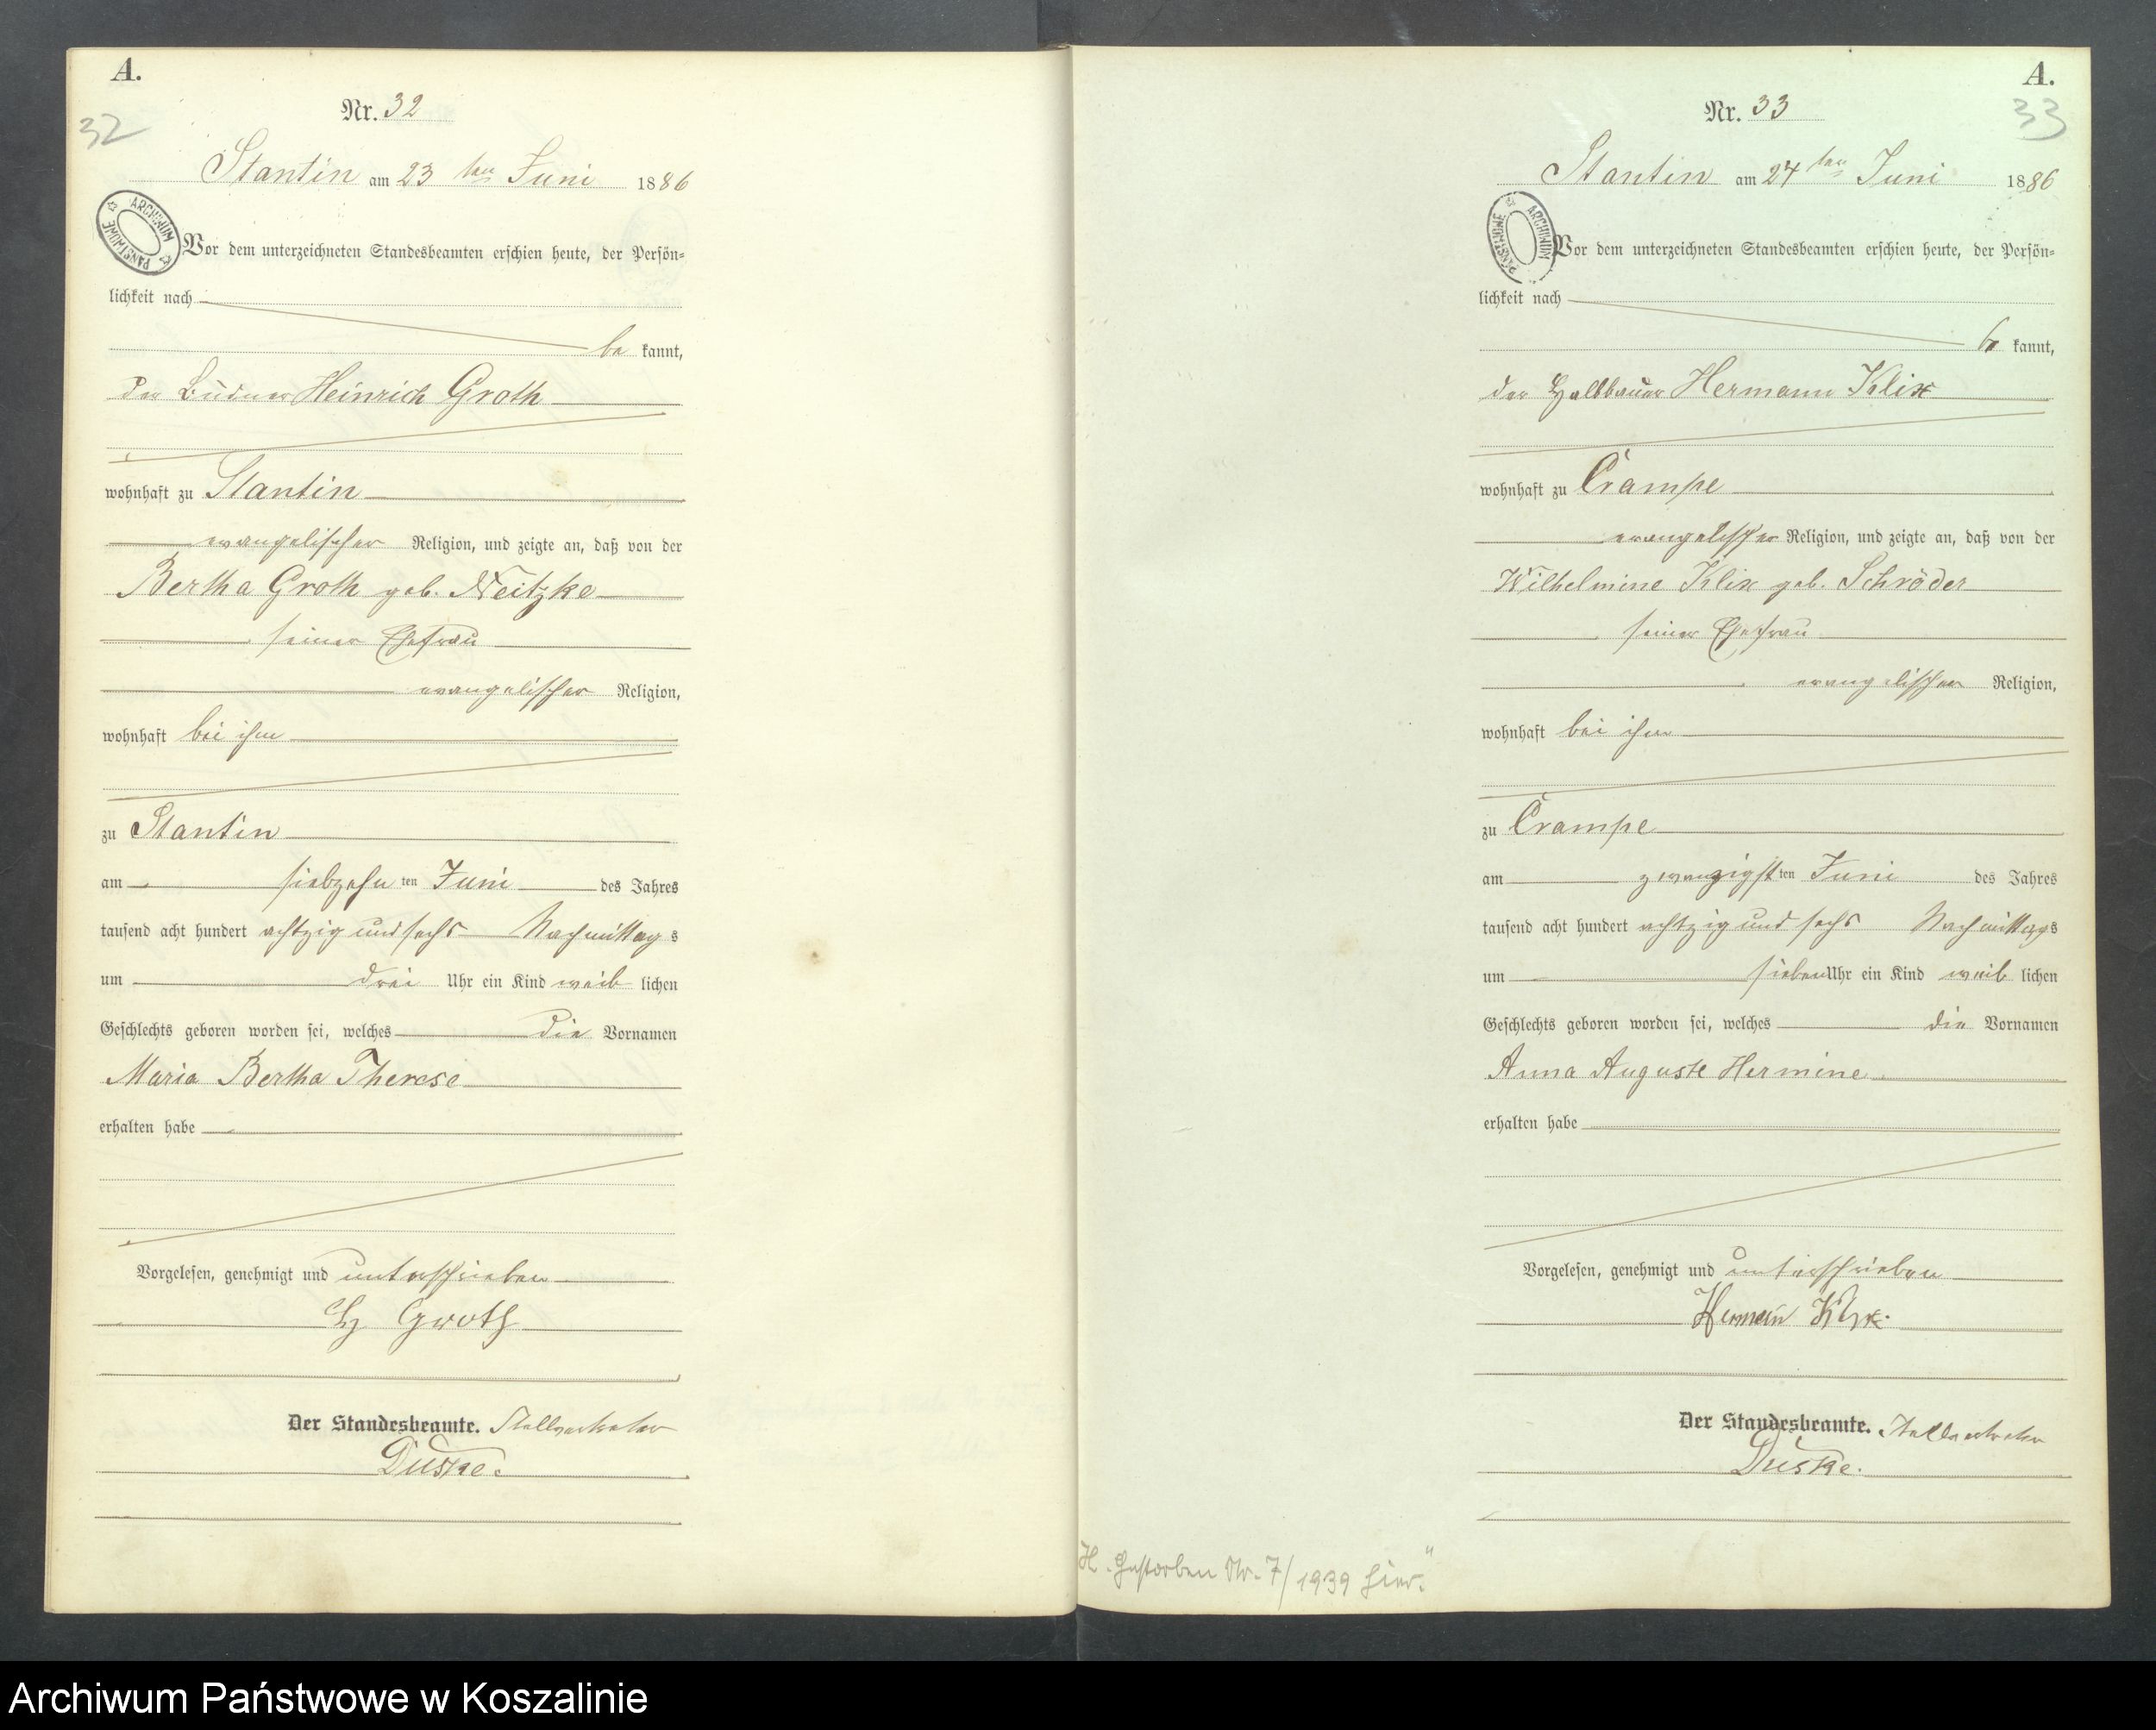 A.
32
Nr. 32
Stantin am 23 ten Juni 1886
ARCHIWUM PAŃSTWOWE
Vor dem unterzeichneten Standesbeamten erschien heute, der Persön-
lichkeit nach
be kannt,
der Büdner Heinrich Groth
wohnhaft zu Stantin
evangelischer Religion, und zeigte an, daß von der
Bertha Groth geb. Neitzke
seiner Ehefrau
evangelischer Religion,
wohnhaft bei ihm
zu Stantin
am siebzehn ten Juni des Jahres
tausend acht hundert achtzig und sechs Nachmittag s
um drei Uhr ein Kind weib lichen
Geschlechts geboren worden sei, welches die Vornamen
Maria Bertha Therese
erhalten habe
Vorgelesen, genehmigt und unterschrieben
H Groth
Der Standesbeamte. Stellvertreter
Duske.
A.
33
Nr. 33
Stantin am 24 ten Juni 1886
ARCHIWUM PAŃSTWOWE
Vor dem unterzeichneten Standesbeamten erschien heute, der Persön-
lichkeit nach
be kannt,
der Halbbauer Hermann Klix
wohnhaft zu Crampe
evangelischer Religion, und zeigte an, daß von der
Wilhelmine Klix geb. Schröder
seiner Ehefrau
evangelischer Religion,
wohnhaft bei ihm
zu Crampe
am zwanzigst ten Juni des Jahres
tausend acht hundert achtzig und sechs Nachmittags
um sieben Uhr ein Kind weib lichen
Geschlechts geboren worden sei, welches die Vornamen
Anna Auguste Hermine
erhalten habe
Vorgelesen, genehmigt und unterschrieben
Hermann Klix.
Der Standesbeamte. Stellvertreter
Duske.
H. Gestorben Nr. 7/1939 hier."
Archiwum Państwowe w Koszalinie